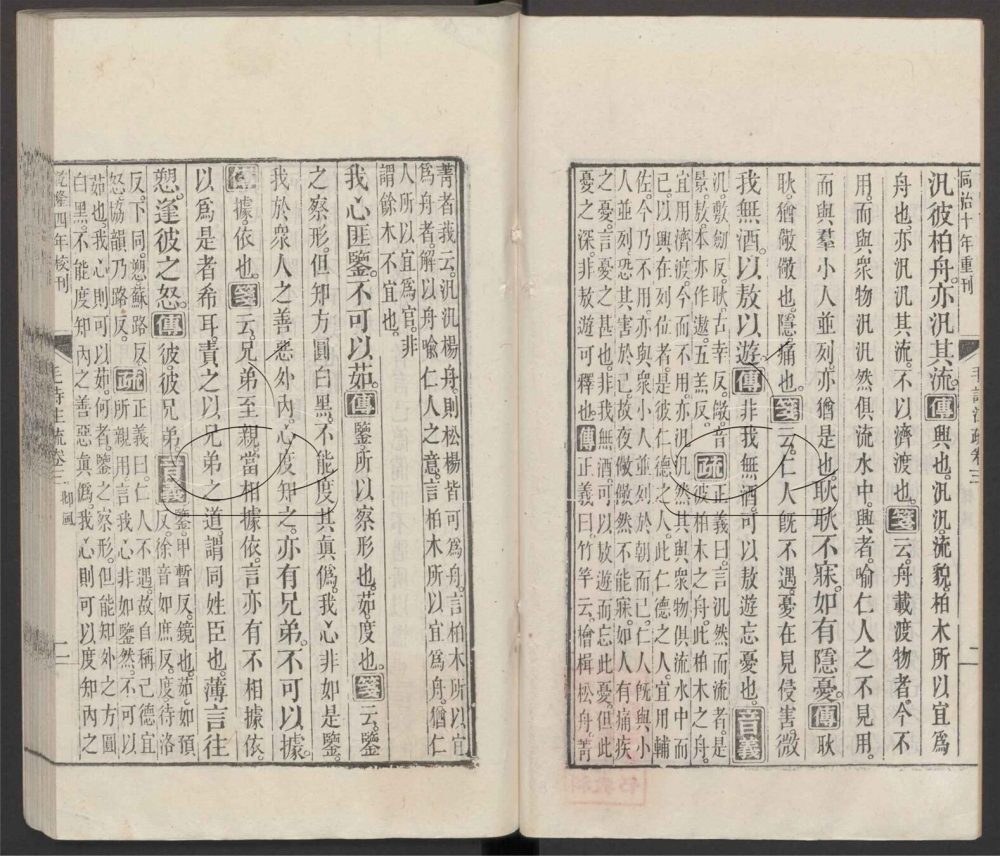 同治十年重刊
毛詩注疏卷三
二
汎彼柏舟。亦汎其流。傳興也。汎汎。流貌。柏木所以宜爲
舟也。亦汎汎其流。不以濟渡也。箋云。舟載渡物者。今不
用。而與衆物汎汎然俱流水中。興者。喻仁人之不見用。
而與羣小人並列。亦猶是也。耿耿不寐。如有隱憂。傳耿
耿。猶儆儆也。隱痛也。箋云。仁人旣不遇。憂在見侵害。微
我無酒。以敖以遊。傳非我無酒。可以敖遊忘憂也。音義
汎。敷劒反。耿。古幸反。儆。音
景。敖。本亦作遨。五羔反。
疏
正義曰。言汎然而流者。是
彼柏木之舟。此柏木之舟。
宜用濟渡。今而不用。亦汎汎然。其與衆物俱流水中而
已。以興在列位者。是彼仁德之人。此仁德之人。宜用輔
佐。今乃不用。亦與衆小人並列於朝而已。仁人旣與小
人並列。恐其害於己。故夜儆儆然不能寐。如人有痛疾
之憂。言憂之甚也。非我無酒。可以敖遊而忘此憂。但此
憂之深。非敖遊可釋也。傳正義曰。竹竿云。檜楫松舟。菁
菁者莪云。汎汎楊舟。則松楊皆可爲舟。言柏木所以宜
爲舟者。解以舟喻仁人之意。言柏木所以宜爲舟。猶仁
人所以宜爲官。非
謂餘木不宜也。
我心匪鑒。不可以茹。傳鑒。所以察形也。茹。度也。箋云。鑒
之察形。但知方圓白黑。不能度其眞僞。我心非如是鑒。
我於衆人之善惡外內。心度知之。亦有兄弟。不可以據。
傳據依也。箋云。兄弟至親。當相據依。言亦有不相據依
以爲是者希耳。責之以兄弟之道。謂同姓臣也。薄言往
愬。逢彼之怒。傳彼。彼兄弟。音義
鑒。甲暫反。鏡也。茹。如預
反。徐音如庶反。度。待洛
反。下同。愬。蘇路反。
怒。協韻乃路反。
疏
正義曰。仁人不遇。故自稱己德宜
所親用。言我心非如鑒然。不可以
茹也。我心則可以茹。何者。鑒之察形。但能知外之方圓
白黑。不能度知內之善惡眞僞。我心則可以度知內之
乾隆四年校刊
毛詩注疏卷三
邶風
二